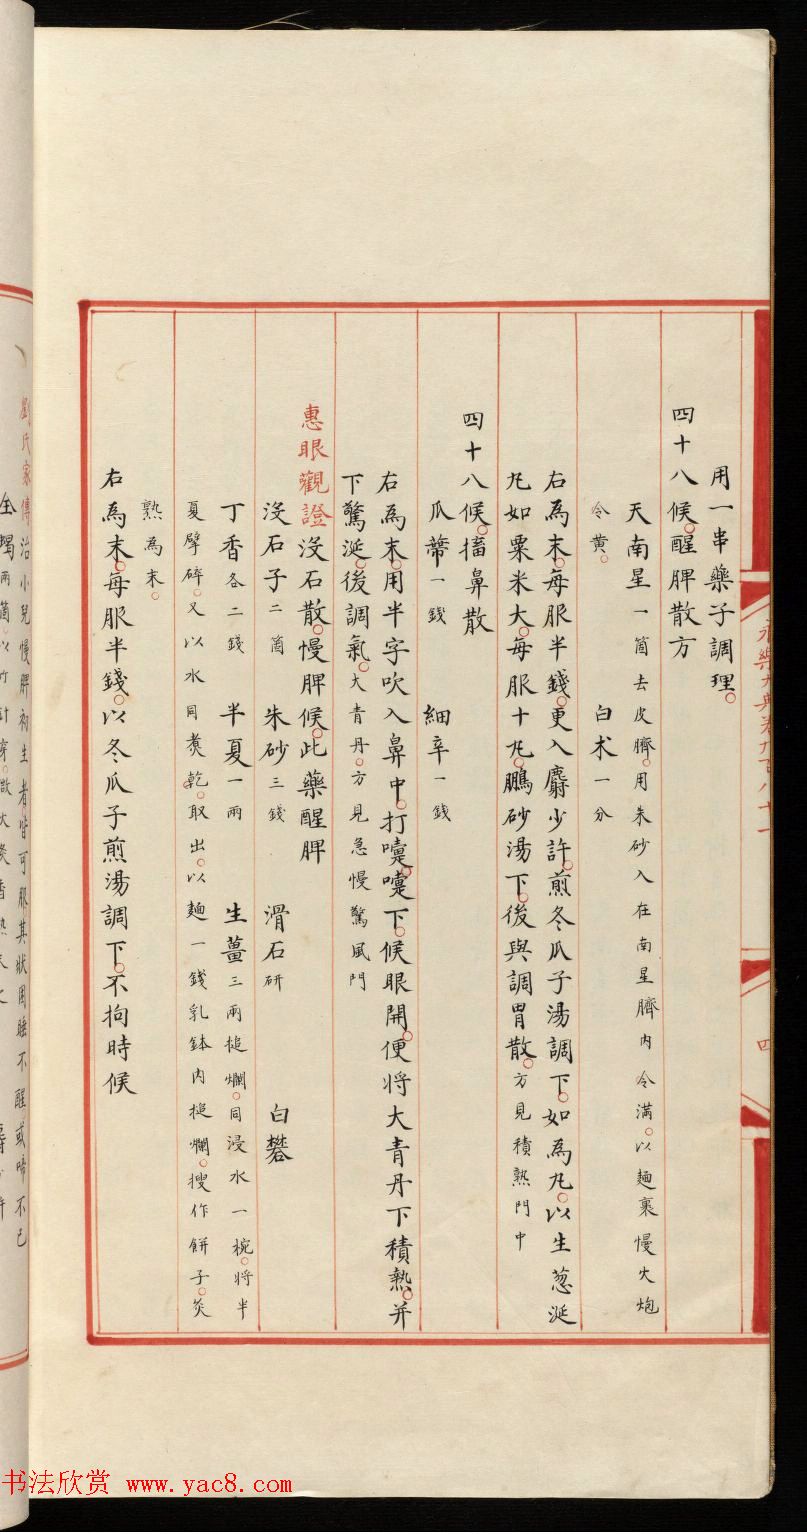 永樂大典卷九百八十一
四
用一串藥子調理。
四十八候。醒脾散方
天南星一箇去皮臍。用朱砂入在南星臍内令滿。以麵裹慢火炮
令黄。
白术一分
右為末。每服半錢。更入麝少許。煎冬瓜子湯調下。如為九。以生葱涎
九如粟米大。每服十九。鵬砂湯下。後與調胃散。方見積熱門中
四十八候。搐鼻散
瓜蔕一錢 細辛一錢
右為末。用半字吹入鼻中。打嚏。嚏下。候眼開。便将大青丹下積熱。并
下驚涎。後調氣。大青丹。方見急慢驚風門
惠眼觀證沒石散。慢脾候。此藥醒脾
沒石子二箇 朱砂三錢 滑石研 白礬
丁香各二錢 半夏一兩 生薑三兩搥爛。同浸水一椀。将半
夏擘碎。又以水同煑乾。取出。以麵一錢乳鉢内搥爛。搜作餅子。炙
熟為末。
右為末。每服半錢。以冬瓜子煎湯調下。不拘時候
劉氏家傳治小兒慢脾初生者皆可服其狀困睡不醒或啼不已
全蝎兩箇。以竹針穿。
书法欣赏 www.yac8.com